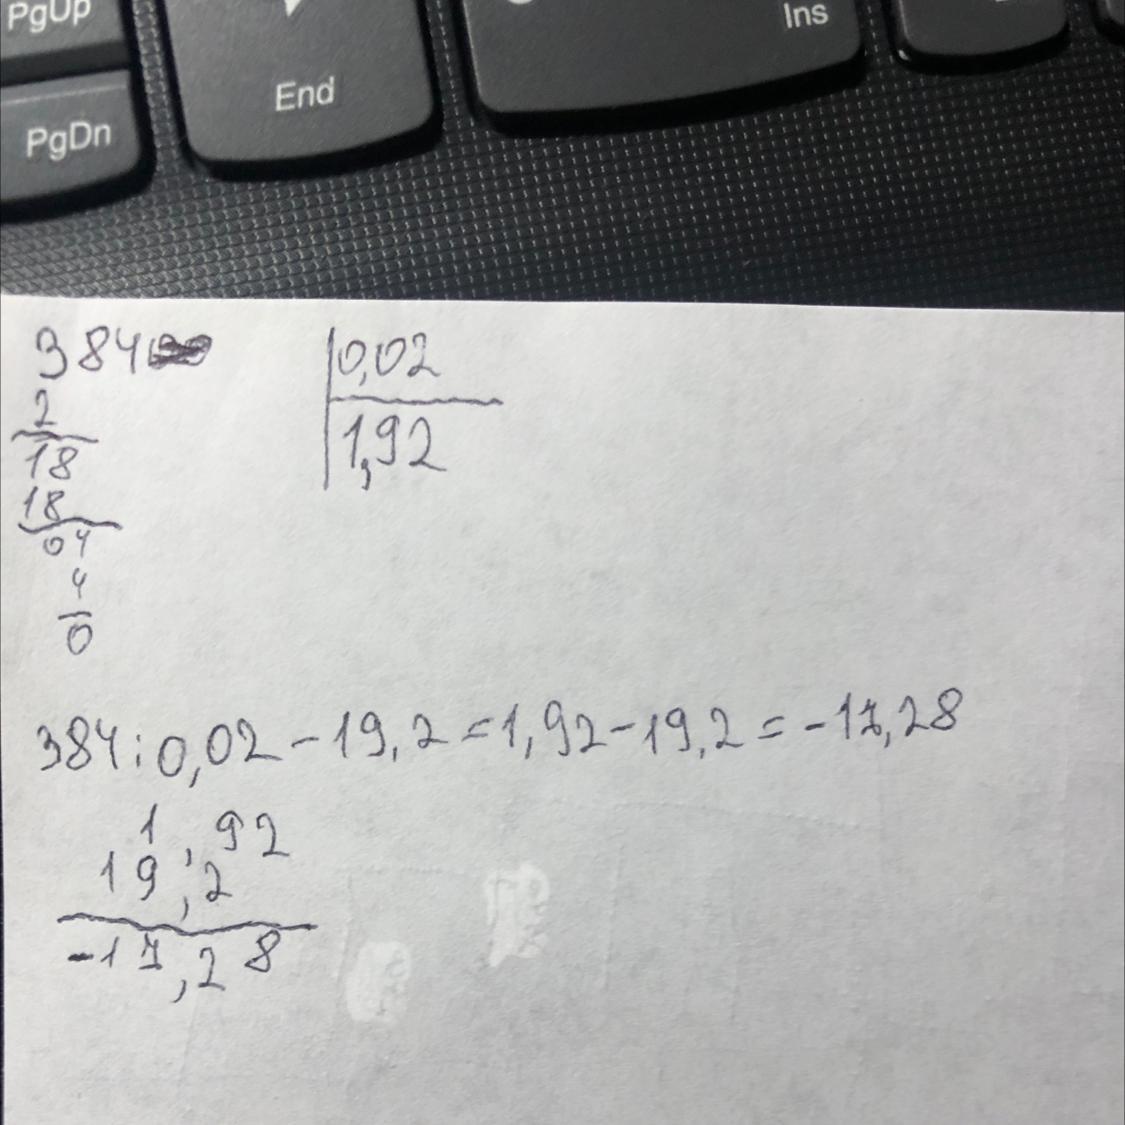 PgUp
Ins
End
PgDn
384 0,02
2 1,92
18
18
04
4
0
384:0,02-19,2=1,92-19,2=-17,28
1,92
19,2
-17,28